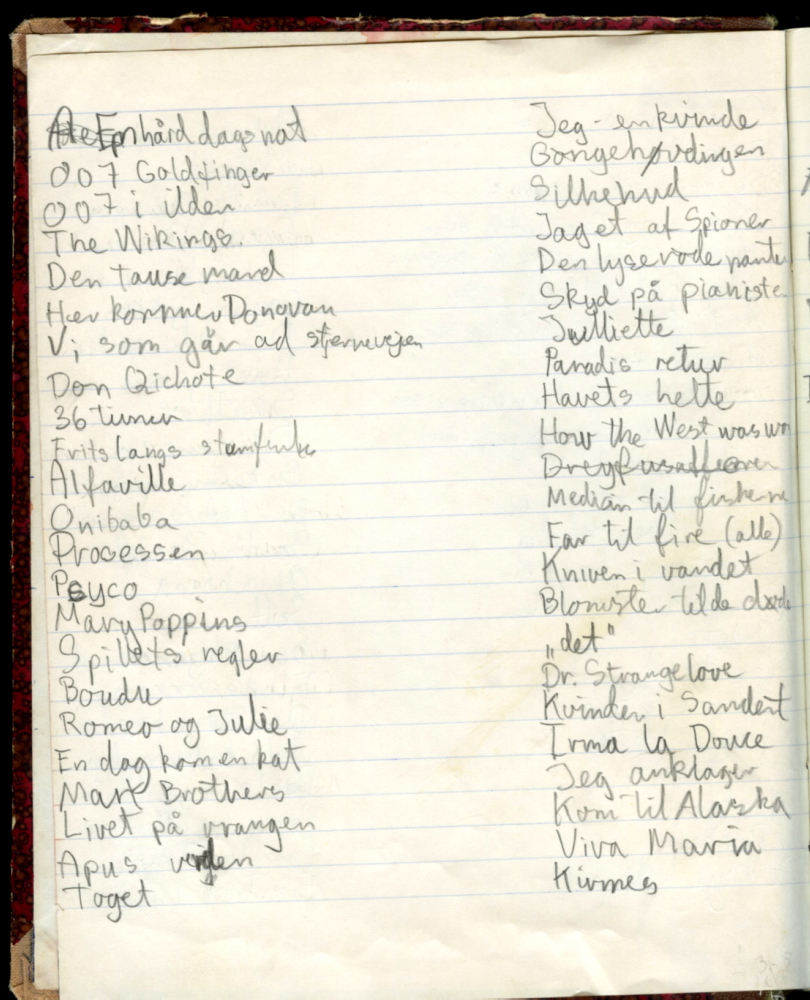 En hård dags nat
007 Goldfinger
007 i ilden
The Wikings.
Den tause mand
Her kommer Donovan
Vi som går ad stjernevejen
Don Qichote
36 timer
Frits Langs stumfilm
Alfaville
Onibaba
Processen
Psyco
Mary Poppins
Spillets regler
Boudu
Romeo og Julie
En dag kom en kat
Marx Brothers
Livet på vrangen
Apus verden
Toget
Jeg - en kvinde
Gøngehøvdingen
Silkehud
Jaget af Spioner
Den lyserøde pante
Skyd på pianiste
Julliette
Paradis retur
Havets helte
How the West was won
Dreyfusaffæren
Median til fiskerne
Far til fire (alle)
Kniven i vandet
Blomster til de døde
"det"
Dr. Strangelove
Kvinden i Sandet
Irma la Douce
Jeg anklager
Kom til Alaska
Viva Maria
Kirmes